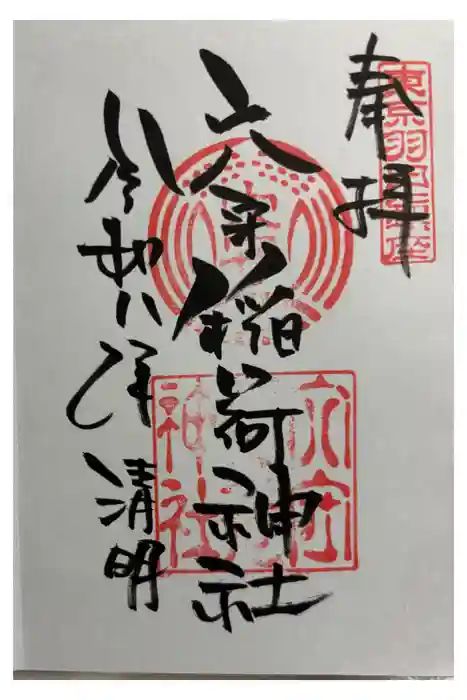 奉拝
東京羽田鎮座
穴守稲荷神社
令和八年 清明
穴守
稲荷
神社